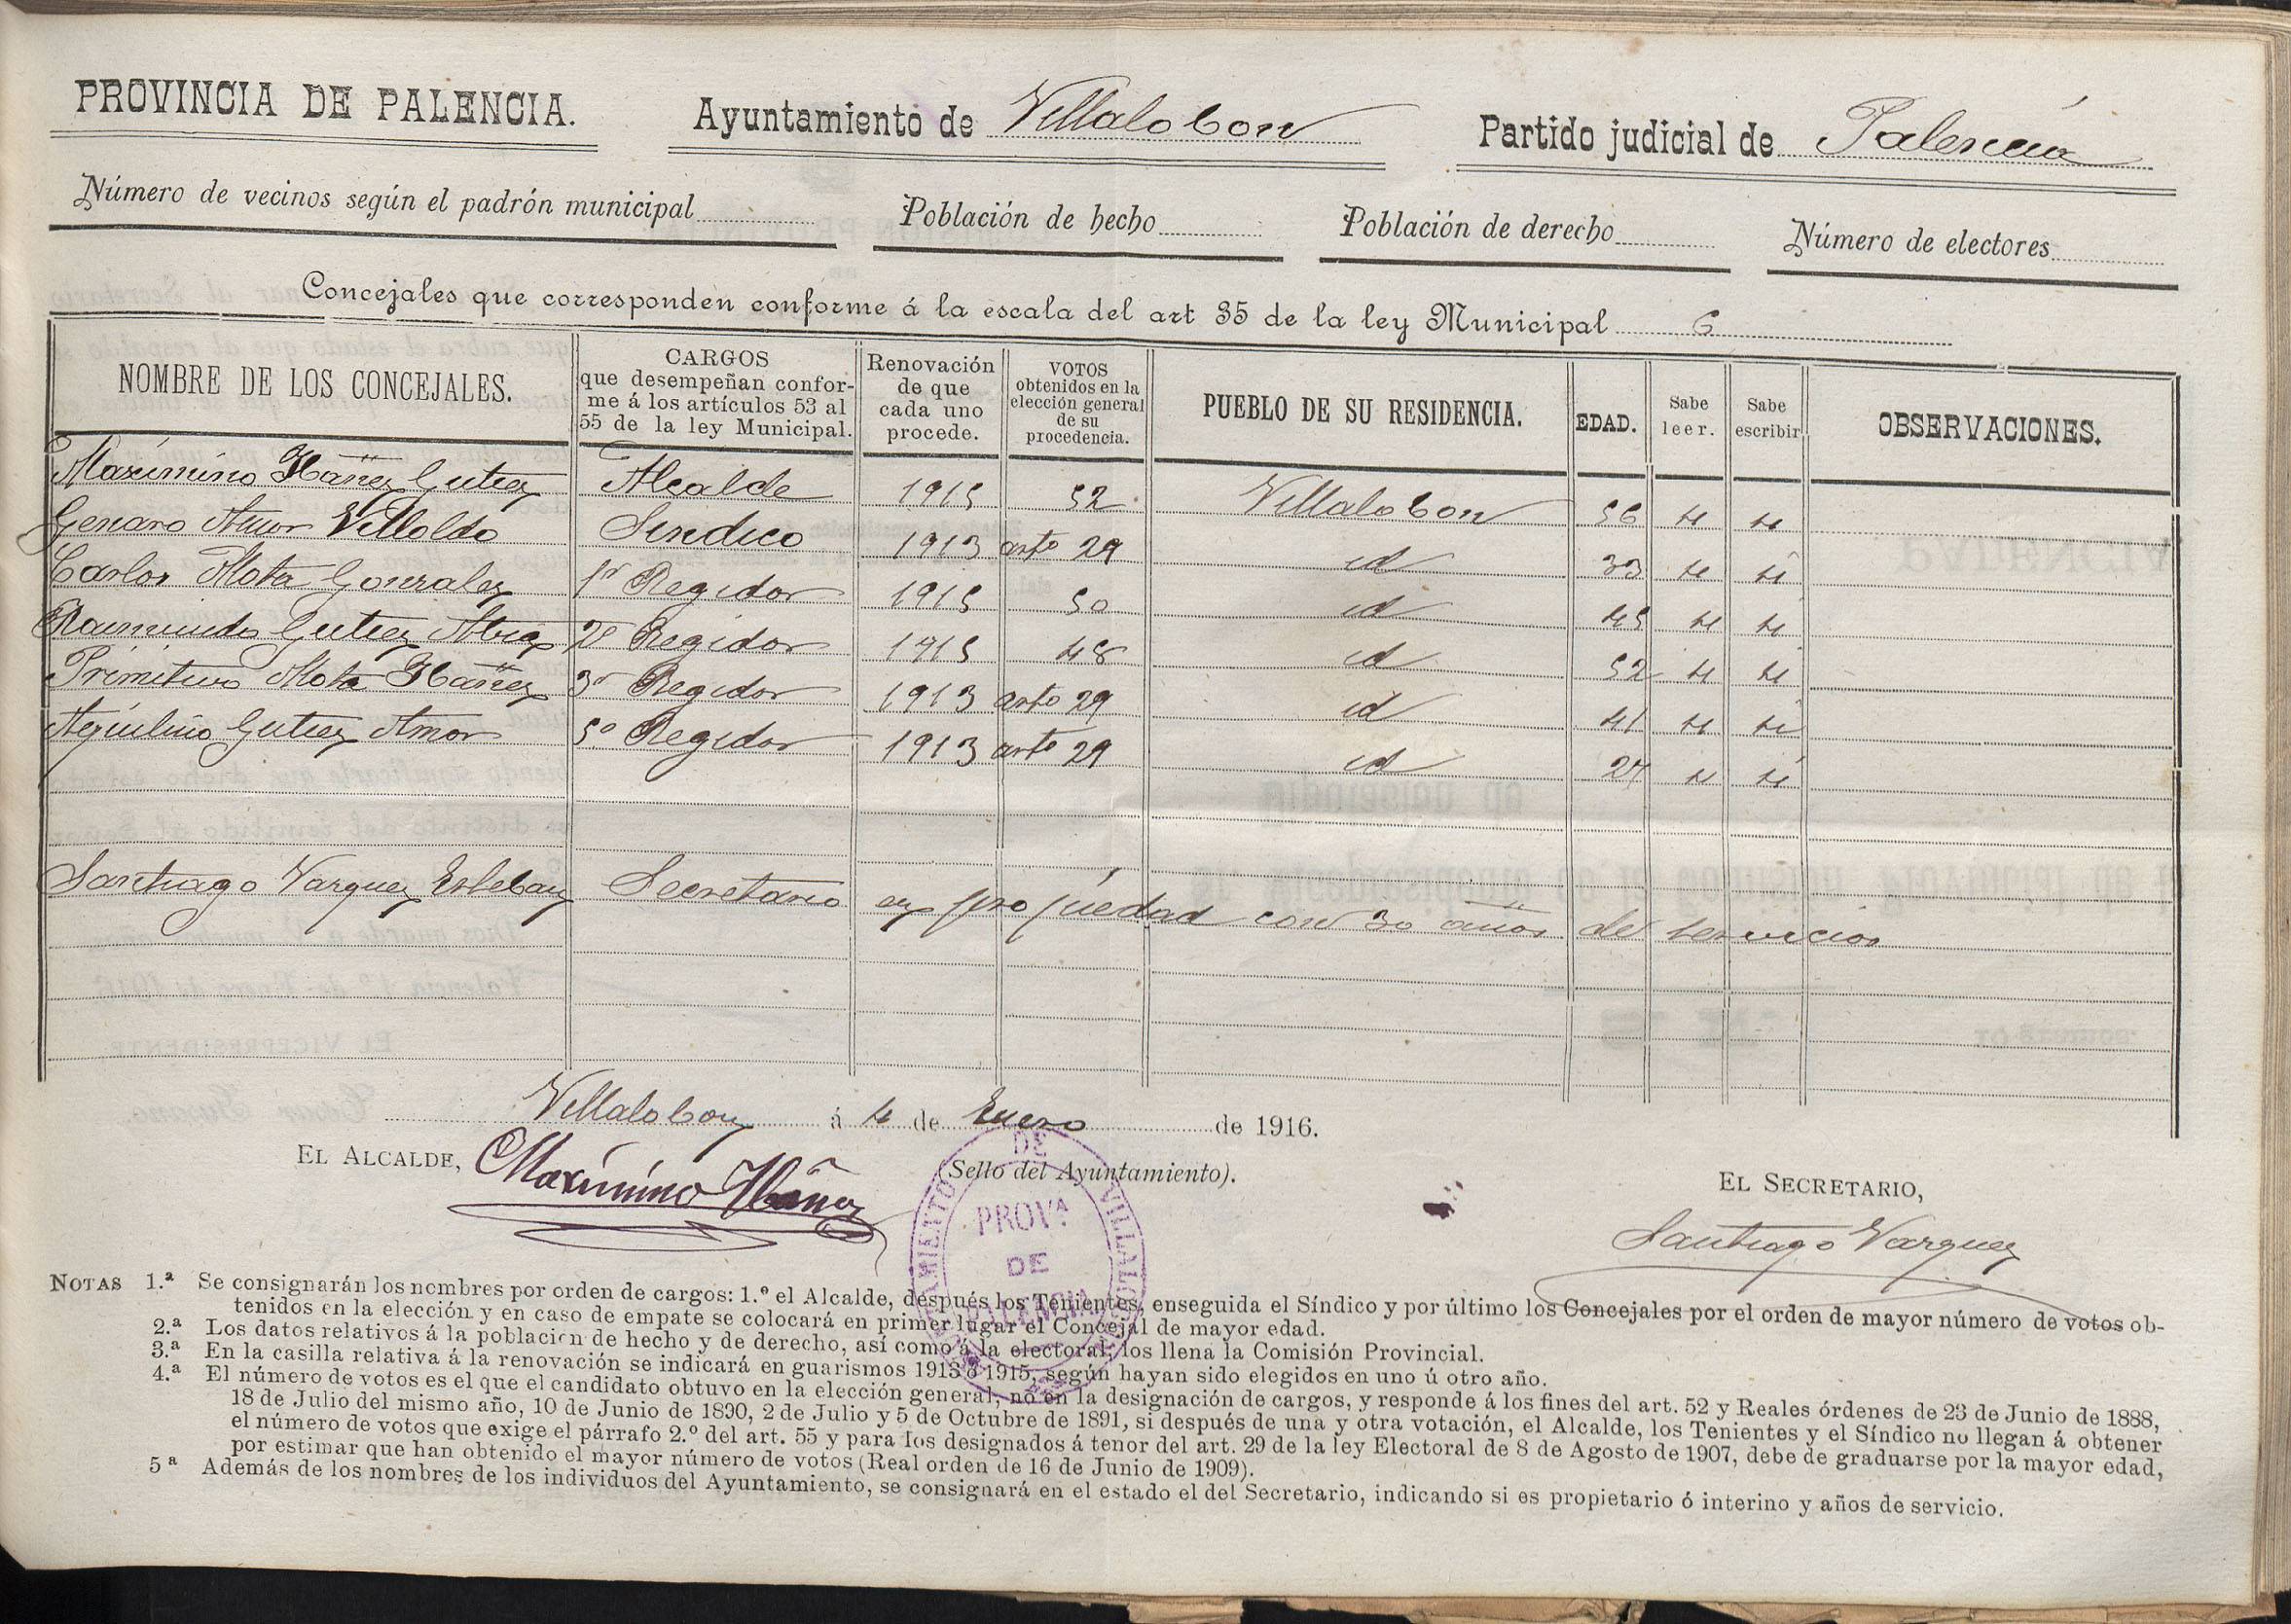 PROVINCIA DE PALENCIA. Ayuntamiento de Villalobon Partido judicial de Palencia
Número de vecinos según el padrón municipal Población de hecho Población de derecho Número de electores
Concejales que corresponden conforme á la escala del art 35 de la ley Municipal 6
NOMBRE DE LOS CONCEJALES. CARGOS que desempeñan conforme á los artículos 53 al 55 de la ley Municipal. Renovación de que cada uno procede. VOTOS obtenidos en la elección general de su procedencia. PUEBLO DE SU RESIDENCIA. EDAD. Sabe leer. Sabe escribir OBSERVACIONES.
Maximino Ibáñez Gutiez Alcalde 1915 52 Villalobon 56 si si
Genaro Amor Villoldo Sindico 1913 arto 29 id 33 si si
Carlos Mota Gonzalez 1r Regidor 1915 50 id 45 si si
Raimundo Gutiez Abia 2º Regidor 1915 48 id 52 si si
Primitivo Mota Ibáñez 3r Regidor 1913 arto 29 id 41 si si
Aquilino Gutiez Amor 5º Regidor 1913 arto 29 id 27 si si
Santiago Vazquez Esteban Secretario en propiedad con 30 años de servicios
Villalobon á 4 de Enero de 1916.
EL ALCALDE, Maximino Ibáñez
(Sello del Ayuntamiento).
EL SECRETARIO,
Santiago Vazquez
AYUNTAMIENTO DE VILLALOBON
PROVA
DE
PALENCIA
NOTAS 1.ª Se consignarán los nombres por orden de cargos: 1.º el Alcalde, después los Tenientes, enseguida el Síndico y por último los Concejales por el orden de mayor número de votos ob-
tenidos en la elección y en caso de empate se colocará en primer lugar el Concejal de mayor edad.
2.ª Los datos relativos á la población de hecho y de derecho, así como á la electoral, los llena la Comisión Provincial.
3.ª En la casilla relativa á la renovación se indicará en guarismos 1913 ó 1915, según hayan sido elegidos en uno ú otro año.
4.ª El número de votos es el que el candidato obtuvo en la elección general, no en la designación de cargos, y responde á los fines del art. 52 y Reales órdenes de 23 de Junio de 1888,
18 de Julio del mismo año, 10 de Junio de 1890, 2 de Julio y 5 de Octubre de 1891, si después de una y otra votación, el Alcalde, los Tenientes y el Síndico no llegan á obtener
el número de votos que exige el párrafo 2.º del art. 55 y para los designados á tenor del art. 29 de la ley Electoral de 8 de Agosto de 1907, debe de graduarse por la mayor edad,
por estimar que han obtenido el mayor número de votos (Real orden de 16 de Junio de 1909).
5ª Además de los nombres de los individuos del Ayuntamiento, se consignará en el estado el del Secretario, indicando si es propietario ó interino y años de servicio.